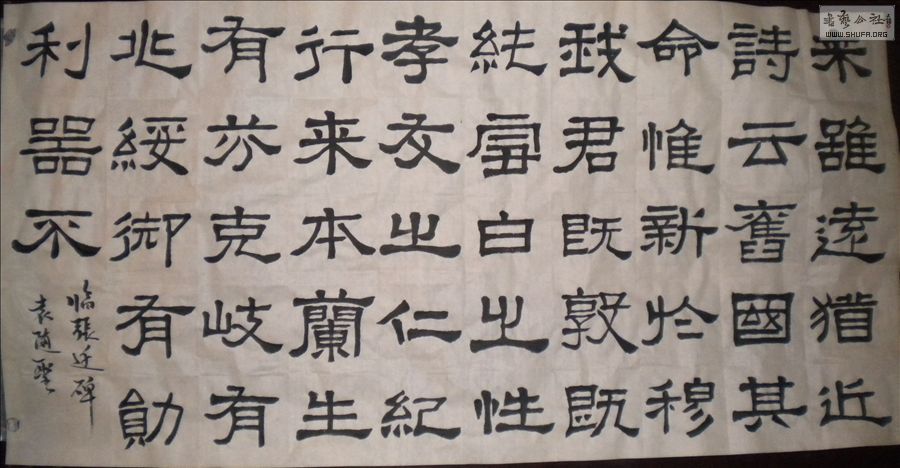 来雖遠猶近
詩云舊國其
命惟新於穆
我君既敦既
純雪白之性
孝友之仁紀
行来本蘭生
有芬克岐有
兆綏御有勛
利器不
临張迁碑
袁随聖
書藝公社
WWW.SHUFA.ORG